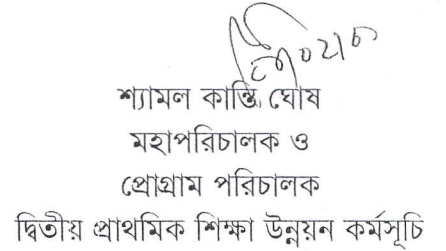 শ্যামল কান্তি ঘোষ
মহাপরিচালক ও
প্রোগ্রাম পরিচালক
দ্বিতীয় প্রাথমিক শিক্ষা উন্নয়ন কর্মসূচি